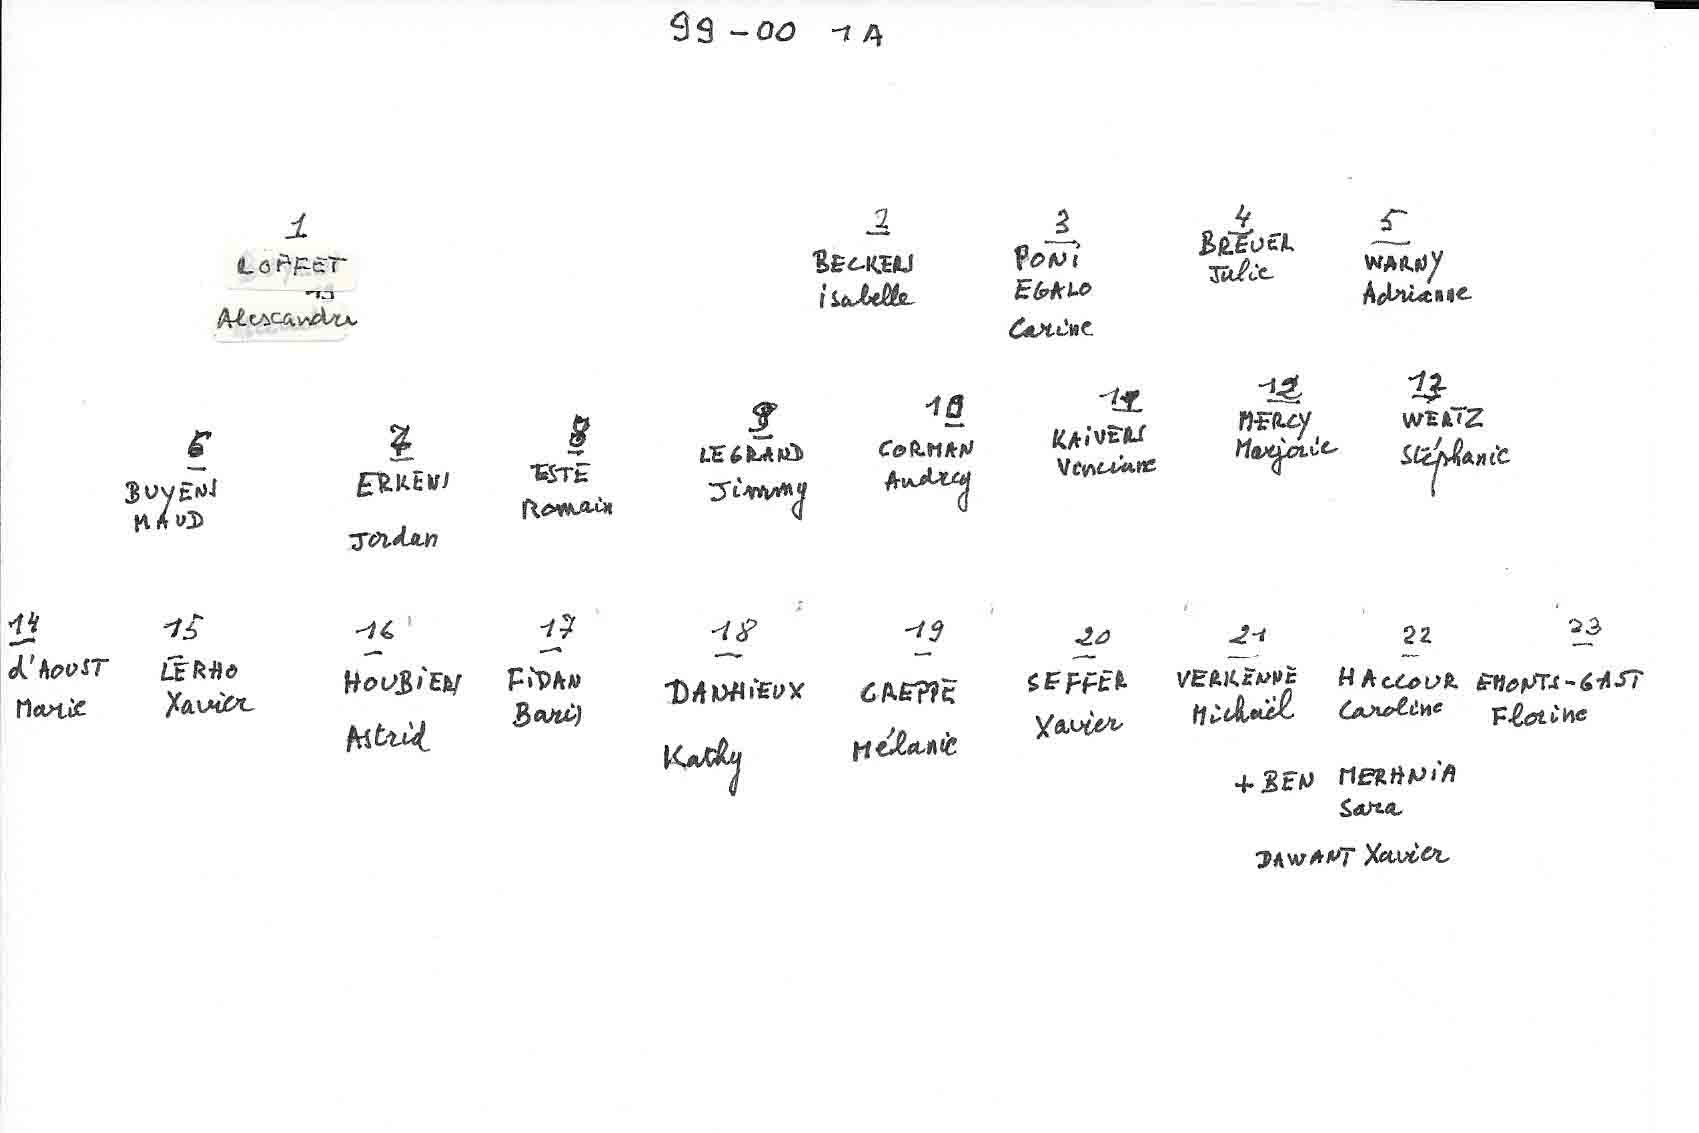 99-00 1A
1
LOFFET
Alescandre
2
BECKERS
isabelle
3
PONI
EGALO
Carine
4
BREUER
Julie
5
WARNY
Adrianne
6
BUYENS
MAUD
7
ERKENS
Jordan
8
ESTE
Romain
9
LEGRAND
Jimmy
10
CORMAN
Audrey
11
KAIVERS
12
MERCY
Marjorie
13
WERTZ
Stéphanie
14
d'AOUST
Marie
15
LERHO
Xavier
16
HOUBIERS
Astrid
17
FIDAN
Baris
18
DANHIEUX
Kathy
19
GREPPE
Mélanie
20
SEFFER
Xavier
21
VERKENNE
Michaël
22
HACCOUR
Caroline
23
EMONTS-GAST
Florine
+ BEN MERHNIA
Sara
DAWANT Xavier